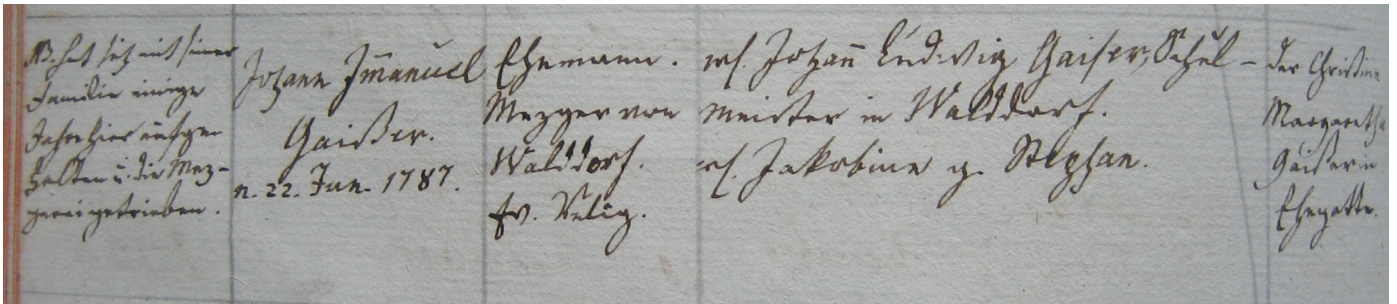 NB. hat sich mit seiner
Familie einige
Jahre hier aufge-
halten u. die Mez-
gerei getrieben.
Johann Im̄anuel
Gaißer.
n. 22. Jun. 1787.
Ehemann.
Mezger von
Walddorf.
Ev. Relig.
Joha n̄ Ludwig Gaiser, Schul-
meister in Walddorf.
Jakobine g. Stephan.
der Christine
Margaretha
Gaißerin
Ehegatte.